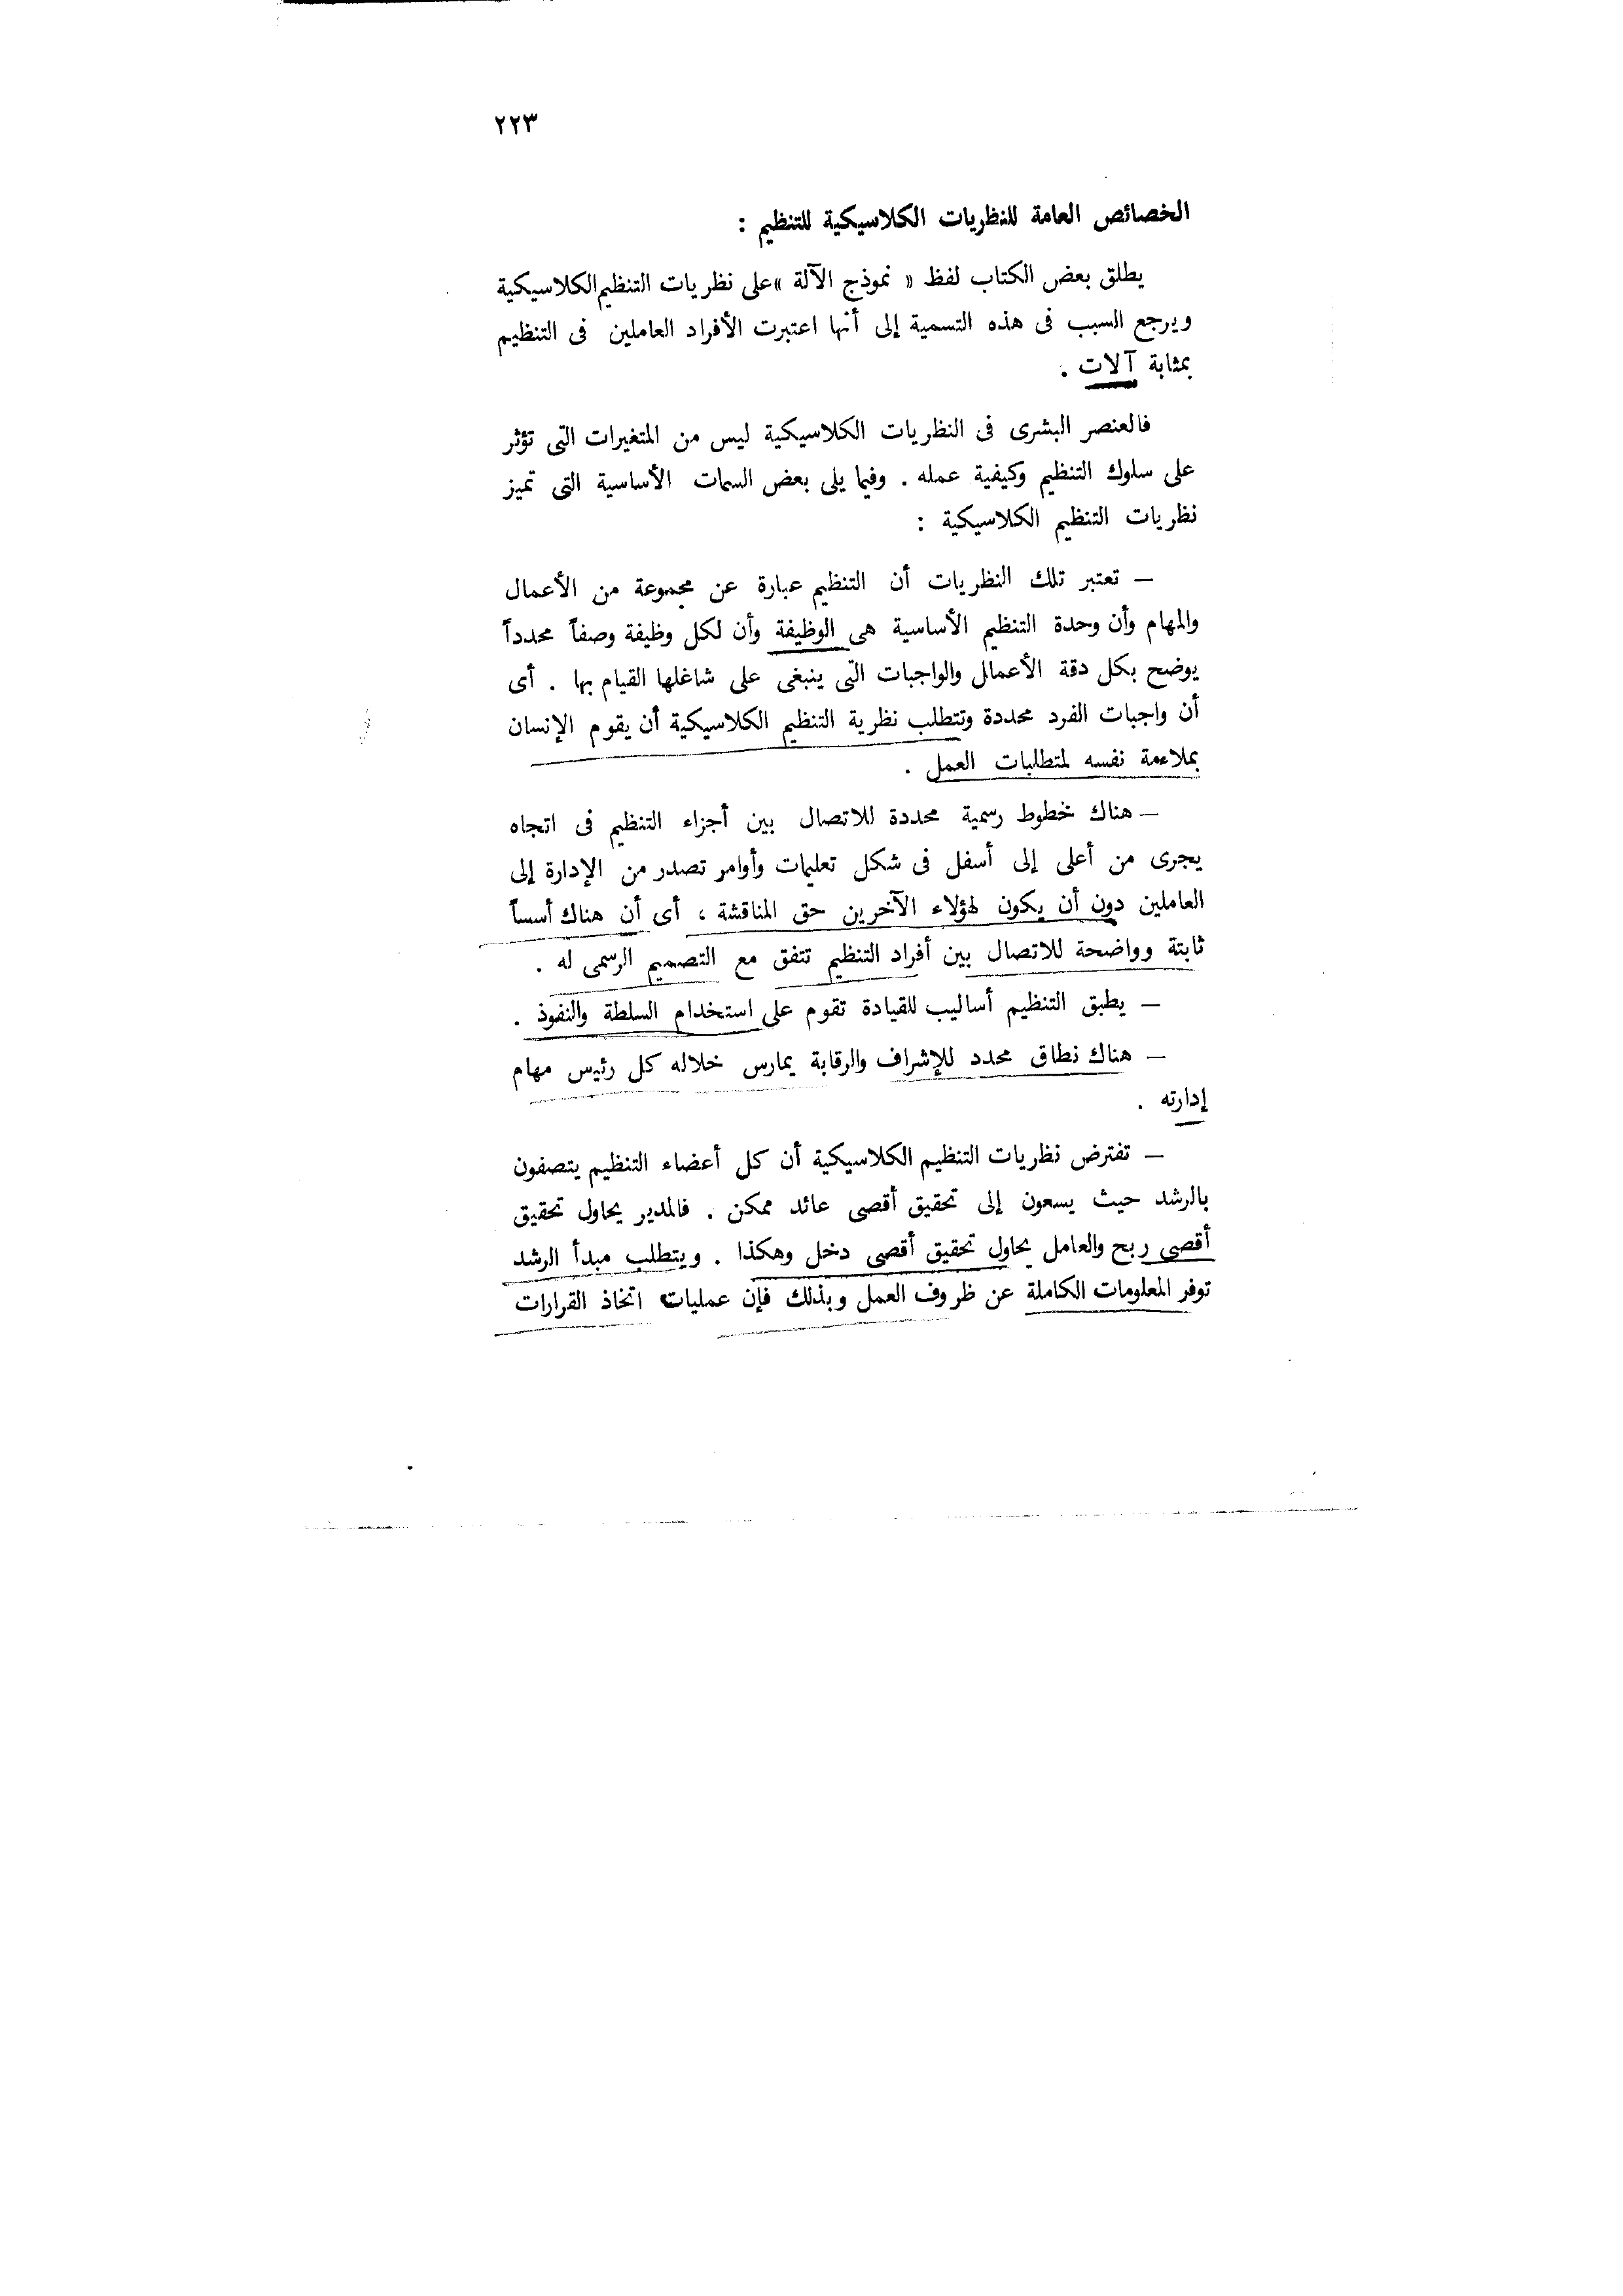 ٢٢٣
الخصائص العامة للنظريات الكلاسيكية للتنظيم :
يطلق بعض الكتاب لفظ « نموذج الآلة » على نظريات التنظيم الكلاسيكية
ويرجع السبب فى هذه التسمية إلى أنها اعتبرت الأفراد العاملين فى التنظيم
بمثابة آلات .
فالعنصر البشرى فى النظريات الكلاسيكية ليس من المتغيرات التى تؤثر
على سلوك التنظيم وكيفية عمله . وفيما يلى بعض السمات الأساسية التى تميز
نظريات التنظيم الكلاسيكية :
— تعتبر تلك النظريات أن التنظيم عبارة عن مجموعة من الأعمال
والمهام وأن وحدة التنظيم الأساسية هى الوظيفة وأن لكل وظيفة وصفاً محدداً
يوضح بكل دقة الأعمال والواجبات التى ينبغى على شاغلها القيام بها . أى
أن واجبات الفرد محددة وتتطلب نظرية التنظيم الكلاسيكية أن يقوم الإنسان
بملاءمة نفسه لمتطلبات العمل .
— هناك خطوط رسمية محددة للاتصال بين أجزاء التنظيم فى اتجاه
يجرى من أعلى إلى أسفل فى شكل تعليمات وأوامر تصدر من الإدارة إلى
العاملين دون أن يكون لهؤلاء الآخرين حق المناقشة ، أى أن هناك أسساً
ثابتة وواضحة للاتصال بين أفراد التنظيم تتفق مع التصميم الرسمى له .
— يطبق التنظيم أساليب للقيادة تقوم على استخدام السلطة والنفوذ .
— هناك نطاق محدد للإشراف والرقابة يمارس خلاله كل رئيس مهام
إدارته .
— تفترض نظريات التنظيم الكلاسيكية أن كل أعضاء التنظيم يتصفون
بالرشد حيث يسعون إلى تحقيق أقصى عائد ممكن . فالمدير يحاول تحقيق
أقصى ربح والعامل يحاول تحقيق أقصى دخل وهكذا . ويتطلب مبدأ الرشد
توفر المعلومات الكاملة عن ظروف العمل وبذلك فإن عمليات اتخاذ القرارات